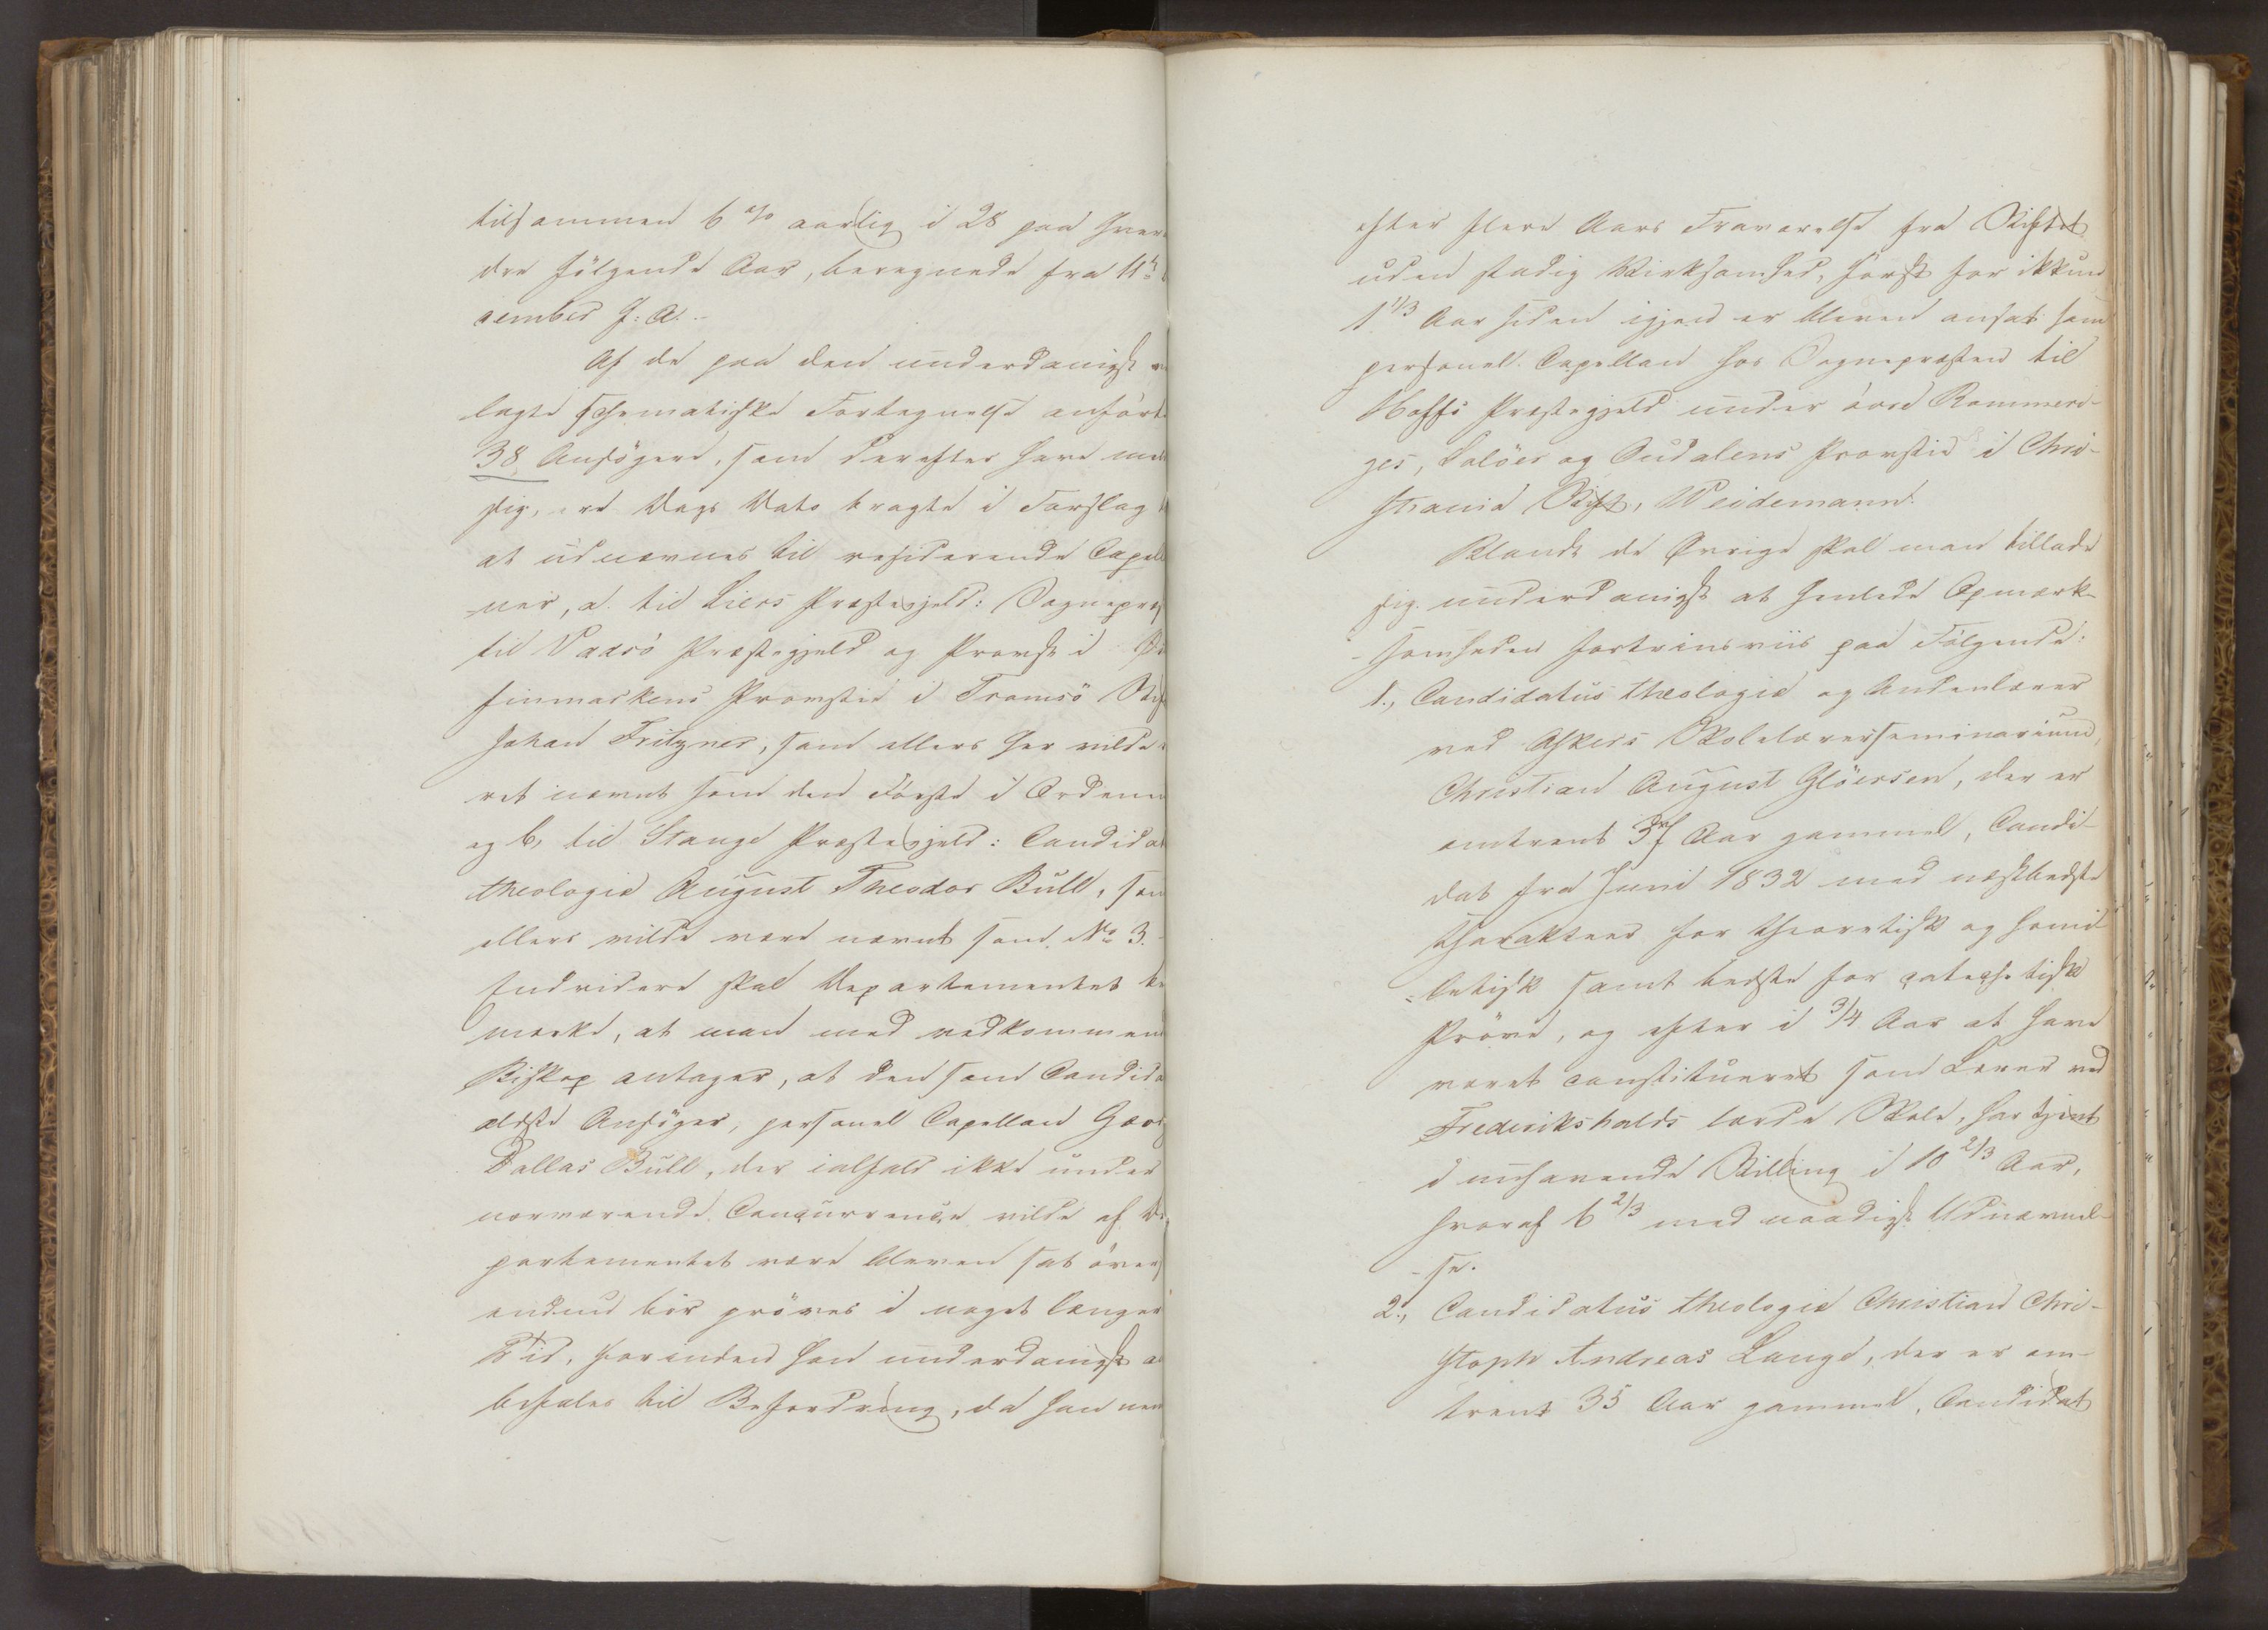 tilsammen 6 % aarlig i 28 paa hver
dre fölgende Aar, beregnede fra 11te
cember f: A. -
Af de paa den underdanigst
lagte schematiske Fortegnelse anförte
38 Ansögere, som derefter have meldt
sig, ere Dags Dato bragte i Forslag
at udnævnes til residerende Capell
ner, a. til Liers Præstegjeld: Sognepræs
til Vadsö Præstegjeld og Provst i Øst
finmarkens Provstie i Tromsö Stift
Johan Fritzner, som ellers her vilde
ret nævnt som den Förste i Ordenen
og b, til Stange Præstegjeld: Candidat
theologiæ August Theodor Bull, som
ellers vilde være nævnt som No 3.
Endvidere skal Departementet be
mærke, at man med vedkommende
Biskop antager, at den som Candidat
ældste Ansöger, personel Capellan Georg
Dallas Bull, der ialfald ikke under
nærværende Concurrence vilde af De
partementet være bleven sat överst
endnu bör pröves i noget længere
Tid, forinden han underdanigst an
befales til Befordring, da han nem
efter flere Aars Fraværelse fra Stiftet
uden stadig Virksomhed, først for ikkun
1 1/3 Aar siden igjen er bleven ansat som
personel Capellan hos Sognepræsten til
Hoffs Præstegjeld under övre Rommeri-
ges, Solöer og Oudalens Provstie i Chri-
stiania Stift, Weidemann.
Blandt de Øvrige skal man tillade
sig underdanigst at henlede Opmærk-
somheden fortrinsviis paa Fölgende:
1., Candidatus theologiæ og Andenlærer
ved Askers Skolelærerseminarium,
Christian August Glöersen, der er
omtrent Aar gammel, Candi-
dat fra Juni 1832 med næstbedste
Charakteer for theoretisk og homi-
letisk samt bedste for catechetisk
Pröve, og efter i 3/4 Aar at have
været constitueret som Lærer ved
Frederikshalds lærde Skole, har tjent
i nuhavende Stilling i 10 2/3 Aar,
hvoraf 6 2/3 med naadigst Udnævnel-
se.
2., Candidatus theologiæ Christian Chri-
stoph Andreas Lange, der er om-
trent 35 Aar gammel, Candidat